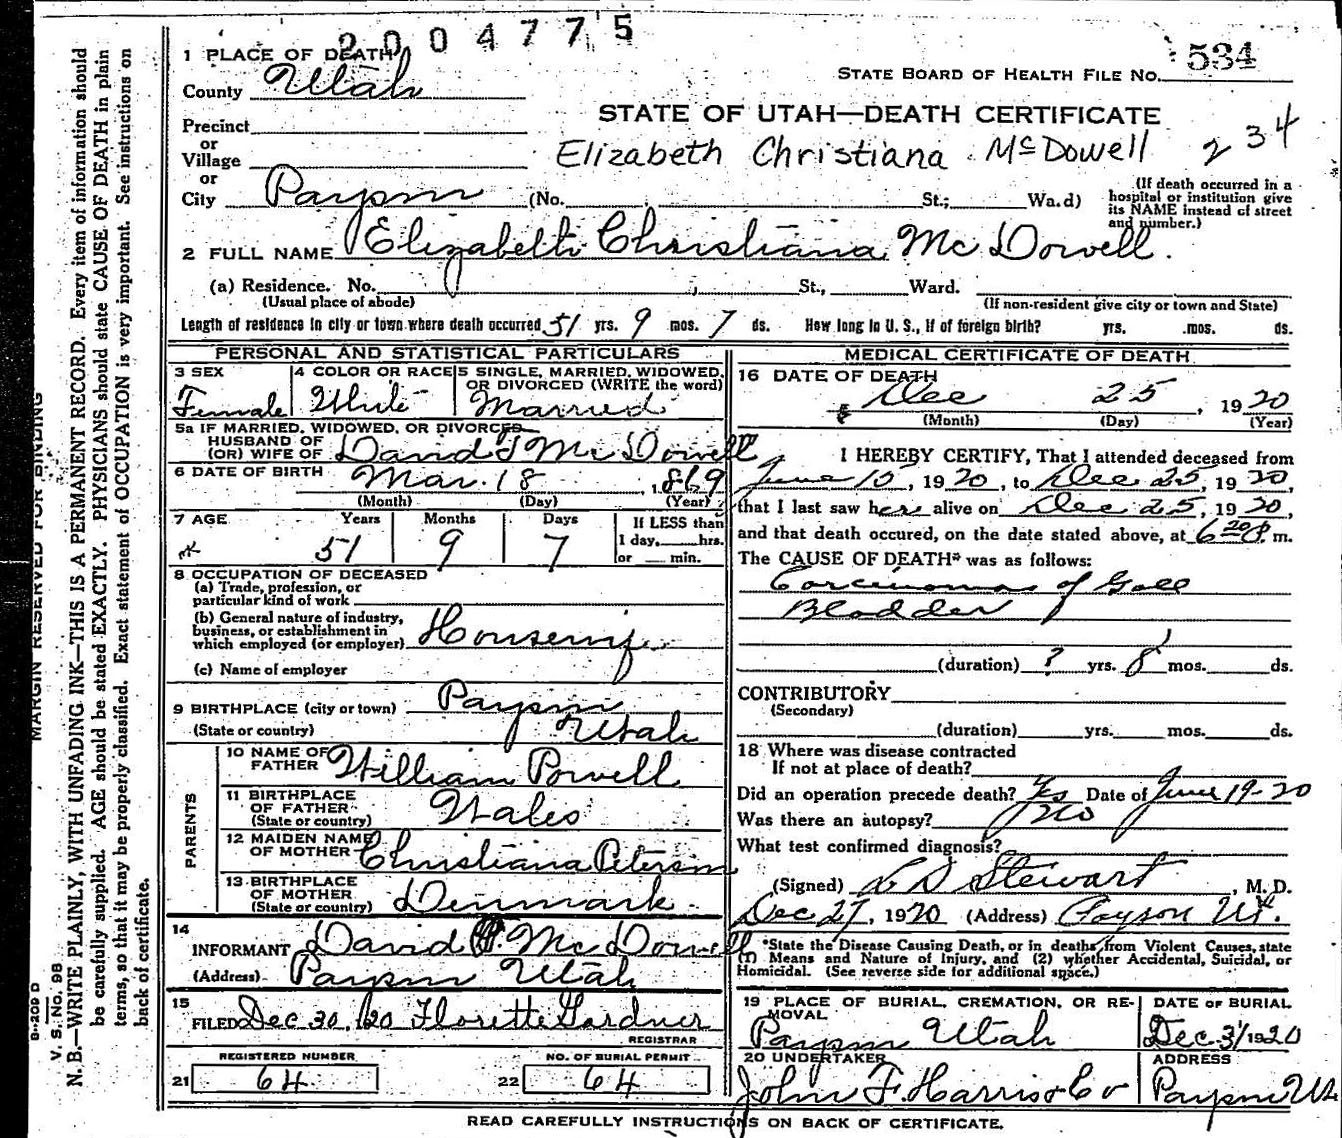 2004775
534
1 PLACE OF DEATH
STATE BOARD OF HEALTH FILE NO.
County Utah
STATE OF UTAH—DEATH CERTIFICATE
Precinct
or
Elizabeth Christiana McDowell 234
Village
or
City Payson (No. St.; Wa.d) (If death occurred in a hospital or institution give its NAME instead of street and number.)
2 FULL NAME Elizabeth Christiana McDowell.
(a) Residence. No. , St., Ward.
(Usual place of abode) (If non-resident give city or town and State)
Length of residence in city or town where death occurred 51 yrs. 9 mos. 7 ds. How long in U. S., if of foreign birth? yrs. mos. ds.
PERSONAL AND STATISTICAL PARTICULARS
3 SEX Female
4 COLOR OR RACE White
5 SINGLE, MARRIED, WIDOWED, OR DIVORCED (WRITE the word) Married
5a IF MARRIED, WIDOWED, OR DIVORCED
HUSBAND OF
(OR) WIFE OF David McDowell
6 DATE OF BIRTH Mar. 18, 1869
(Month) (Day) (Year)
7 AGE Years Months Days If LESS than
51 9 7 1 day, hrs.
or min.
8 OCCUPATION OF DECEASED
(a) Trade, profession, or
particular kind of work
(b) General nature of industry,
business, or establishment in
which employed (or employer) Housewife
(c) Name of employer
9 BIRTHPLACE (city or town) Payson
(State or country) Utah
PARENTS
10 NAME OF
FATHER William Powell
11 BIRTHPLACE
OF FATHER
(State or country) Wales
12 MAIDEN NAME
OF MOTHER Christiana Peterson
13 BIRTHPLACE
OF MOTHER
(State or country) Denmark
14
INFORMANT David McDowell
(Address) Payson Utah
15
FILED Dec 30, 1920 Florette Gardner
REGISTRAR
REGISTERED NUMBER NO. OF BURIAL PERMIT
21 64 22 64
MEDICAL CERTIFICATE OF DEATH
16 DATE OF DEATH
Dec 25, 1920
(Month) (Day) (Year)
I HEREBY CERTIFY, That I attended deceased from
June 15, 1920, to Dec 25, 1920,
that I last saw her alive on Dec 25, 1920,
and that death occured, on the date stated above, at 6 20 P. m.
The CAUSE OF DEATH* was as follows:
Carcinoma of Gall
Bladder
(duration) ? yrs. 8 mos. ds.
CONTRIBUTORY
(Secondary)
(duration) yrs. mos. ds.
18 Where was disease contracted
If not at place of death?
Did an operation precede death? Yes Date of June 19-20
Was there an autopsy? No
What test confirmed diagnosis?
(Signed) L D Stewart, M. D.
Dec 27, 1920 (Address) Payson Ut.
*State the Disease Causing Death, or in deaths from Violent Causes, state
(1) Means and Nature of Injury, and (2) whether Accidental, Suicidal, or
Homicidal. (See reverse side for additional space.)
19 PLACE OF BURIAL, CREMATION, OR RE-
MOVAL
Payson Utah
DATE OF BURIAL
Dec. 31 1920
20 UNDERTAKER
John F. Harris & Co
ADDRESS
Payson Ut.
READ CAREFULLY INSTRUCTIONS ON BACK OF CERTIFICATE.
MARGIN RESERVED FOR BINDING
B-209 D
V. S. No. 98
N. B.—WRITE PLAINLY, WITH UNFADING INK—THIS IS A PERMANENT RECORD. Every item of information should
be carefully supplied. AGE should be stated EXACTLY. PHYSICIANS should state CAUSE OF DEATH in plain
terms, so that it may be properly classified. Exact statement of OCCUPATION is very important. See instructions on
back of certificate.